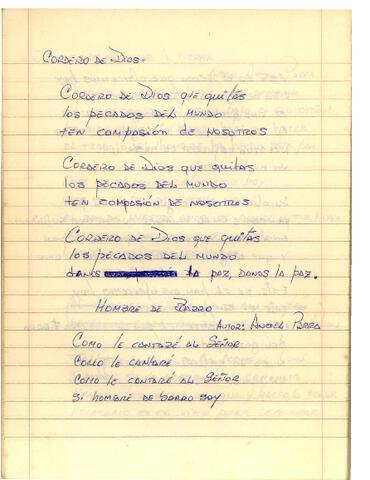 CORDERO DE DIOS.
CORDERO DE DIOS QUE QUITAS
LOS PECADOS DEL MUNDO
TEN COMPASIÓN DE NOSOTROS
CORDERO DE DIOS QUE QUITAS
LOS PECADOS DEL MUNDO
TEN COMPASIÓN DE NOSOTROS
CORDERO DE DIOS QUE QUITAS
LOS PECADOS DEL MUNDO
DANOS LA PAZ, DANOS LA PAZ.
HOMBRE DE BARRO
AUTOR: ANGEL PARRA
COMO LE CANTARÉ AL SEÑOR
COMO LE CANTARÉ
COMO LE CANTARÉ AL SEÑOR
SI HOMBRE DE BARRO SOY